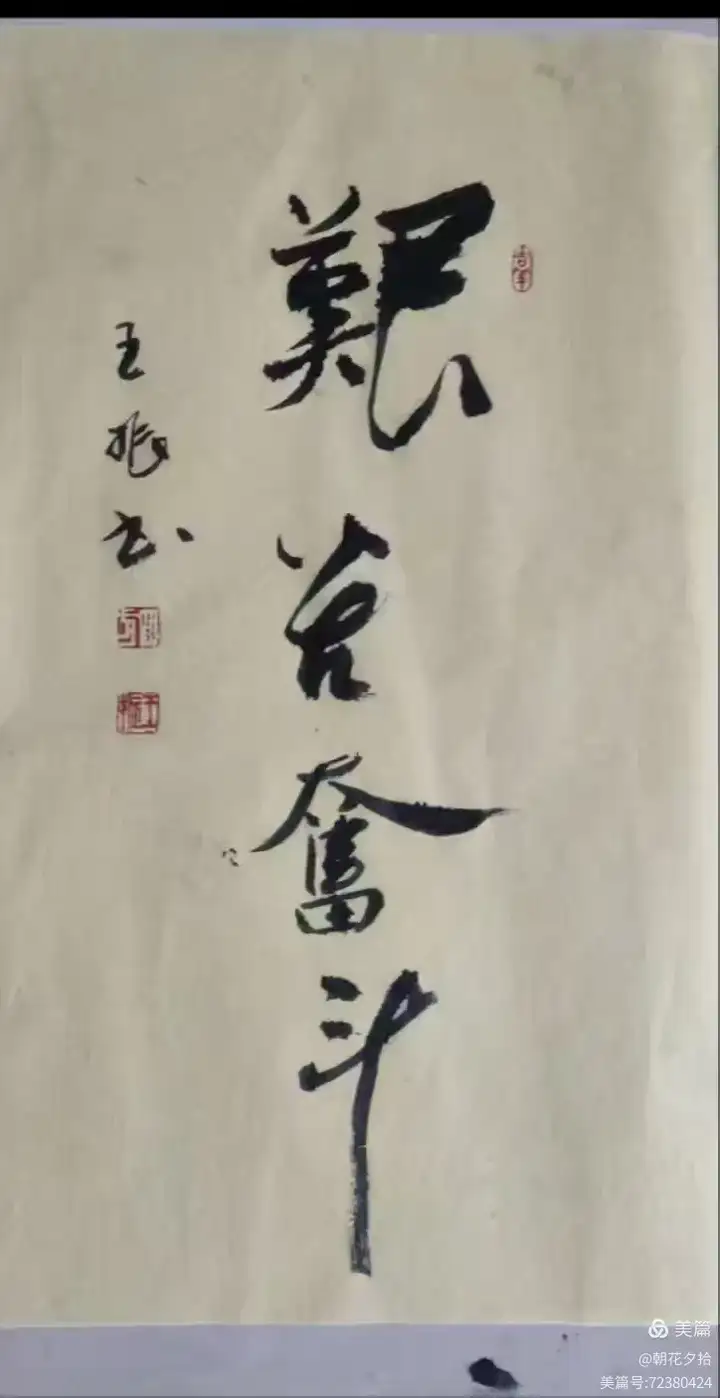 艱苦奮斗
王振书
美篇
@朝花夕拾
美篇号:72380424